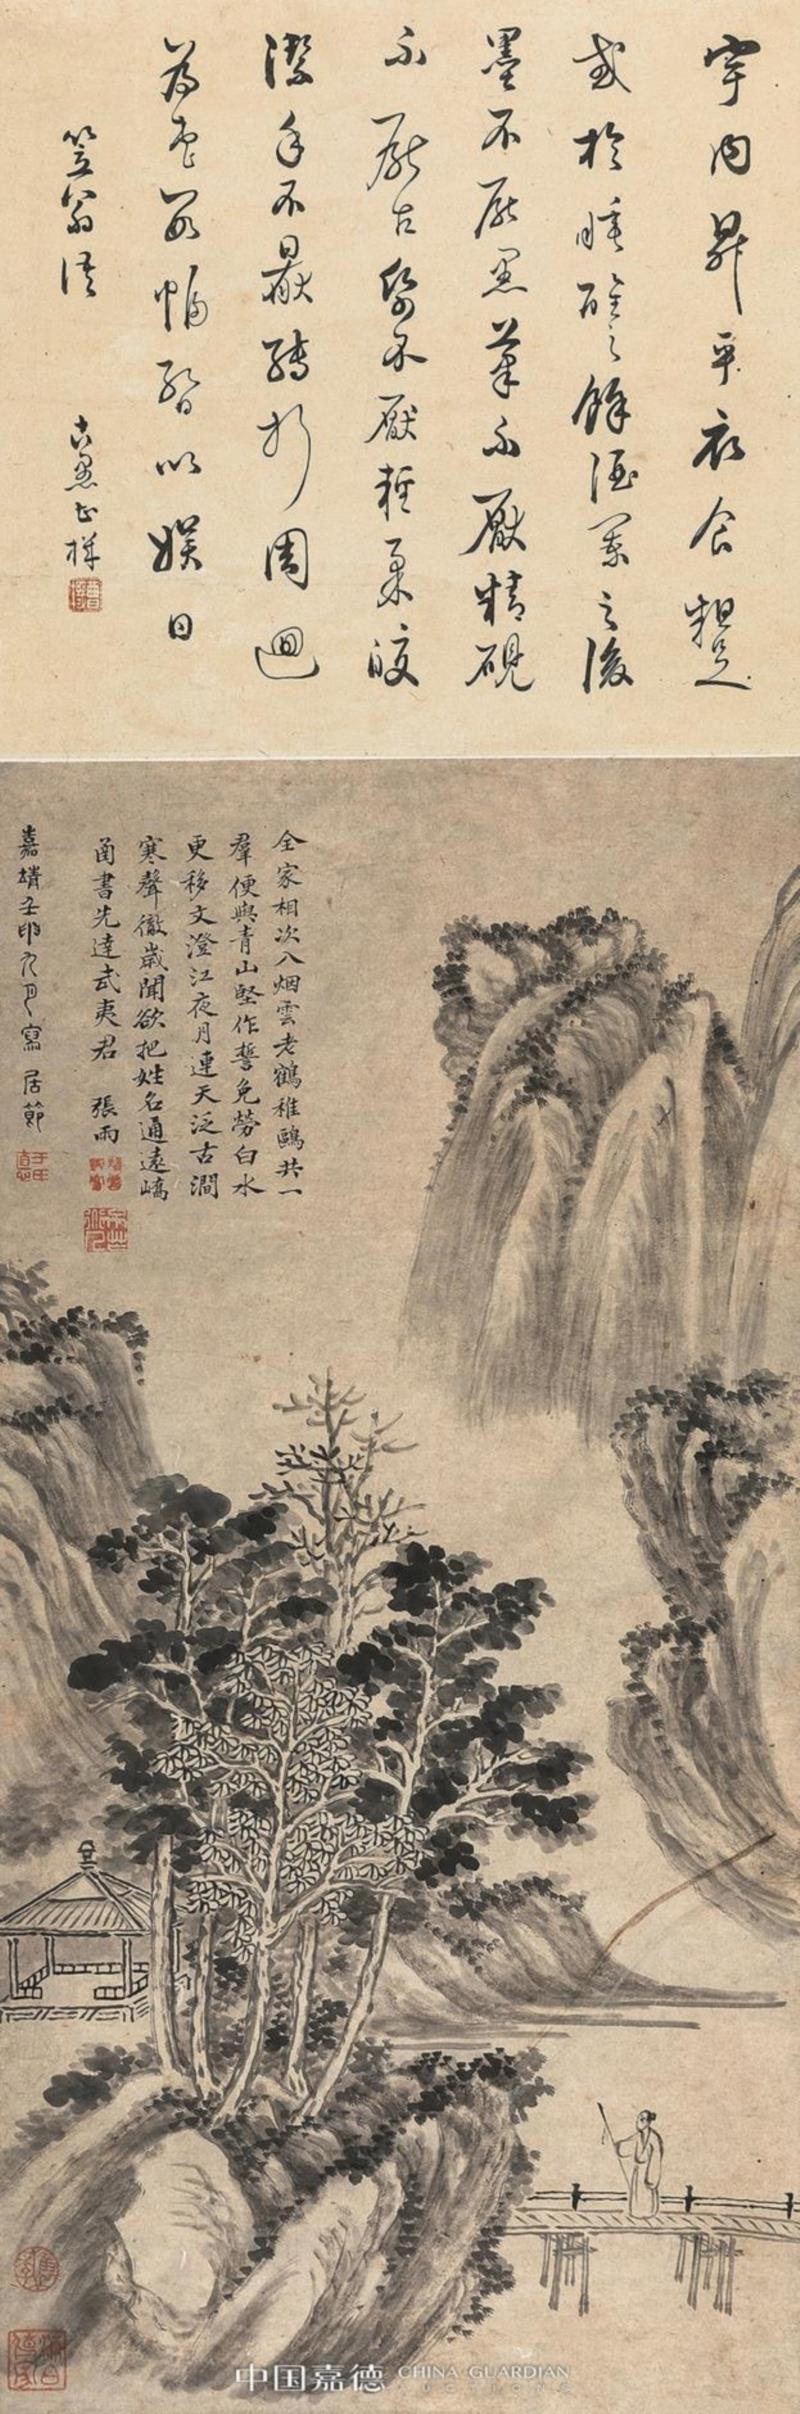 宇内昇平衣食粗足
或於睡醒之餘酒闌之後
墨不厭黑筆不厭精硯
不厭古紙不厭輕柔皎
潔手不厭轉折周迴
為書數幅暫以娛日
笠翁
全家相次入烟雲老鶴稚鷗共一
羣便與青山堅作誓免勞白水
更移文澄江夜月連天泛古澗
寒聲徹歲聞欲把姓名通遠嶠
函書先達武夷君 張雨
嘉靖壬九月寫 居節
中国嘉德 CHINA GUARDIAN
AUCTIONS